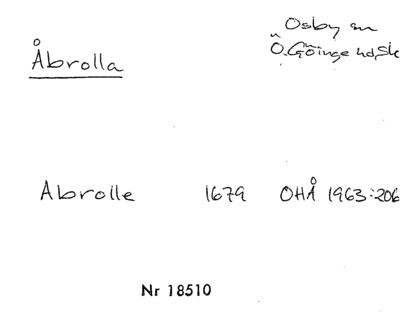 Osby sn
Åbrolla
Ö. Göinge hd, Sk
Abrolle 1679 OHÅ 1963:206
Nr 18510